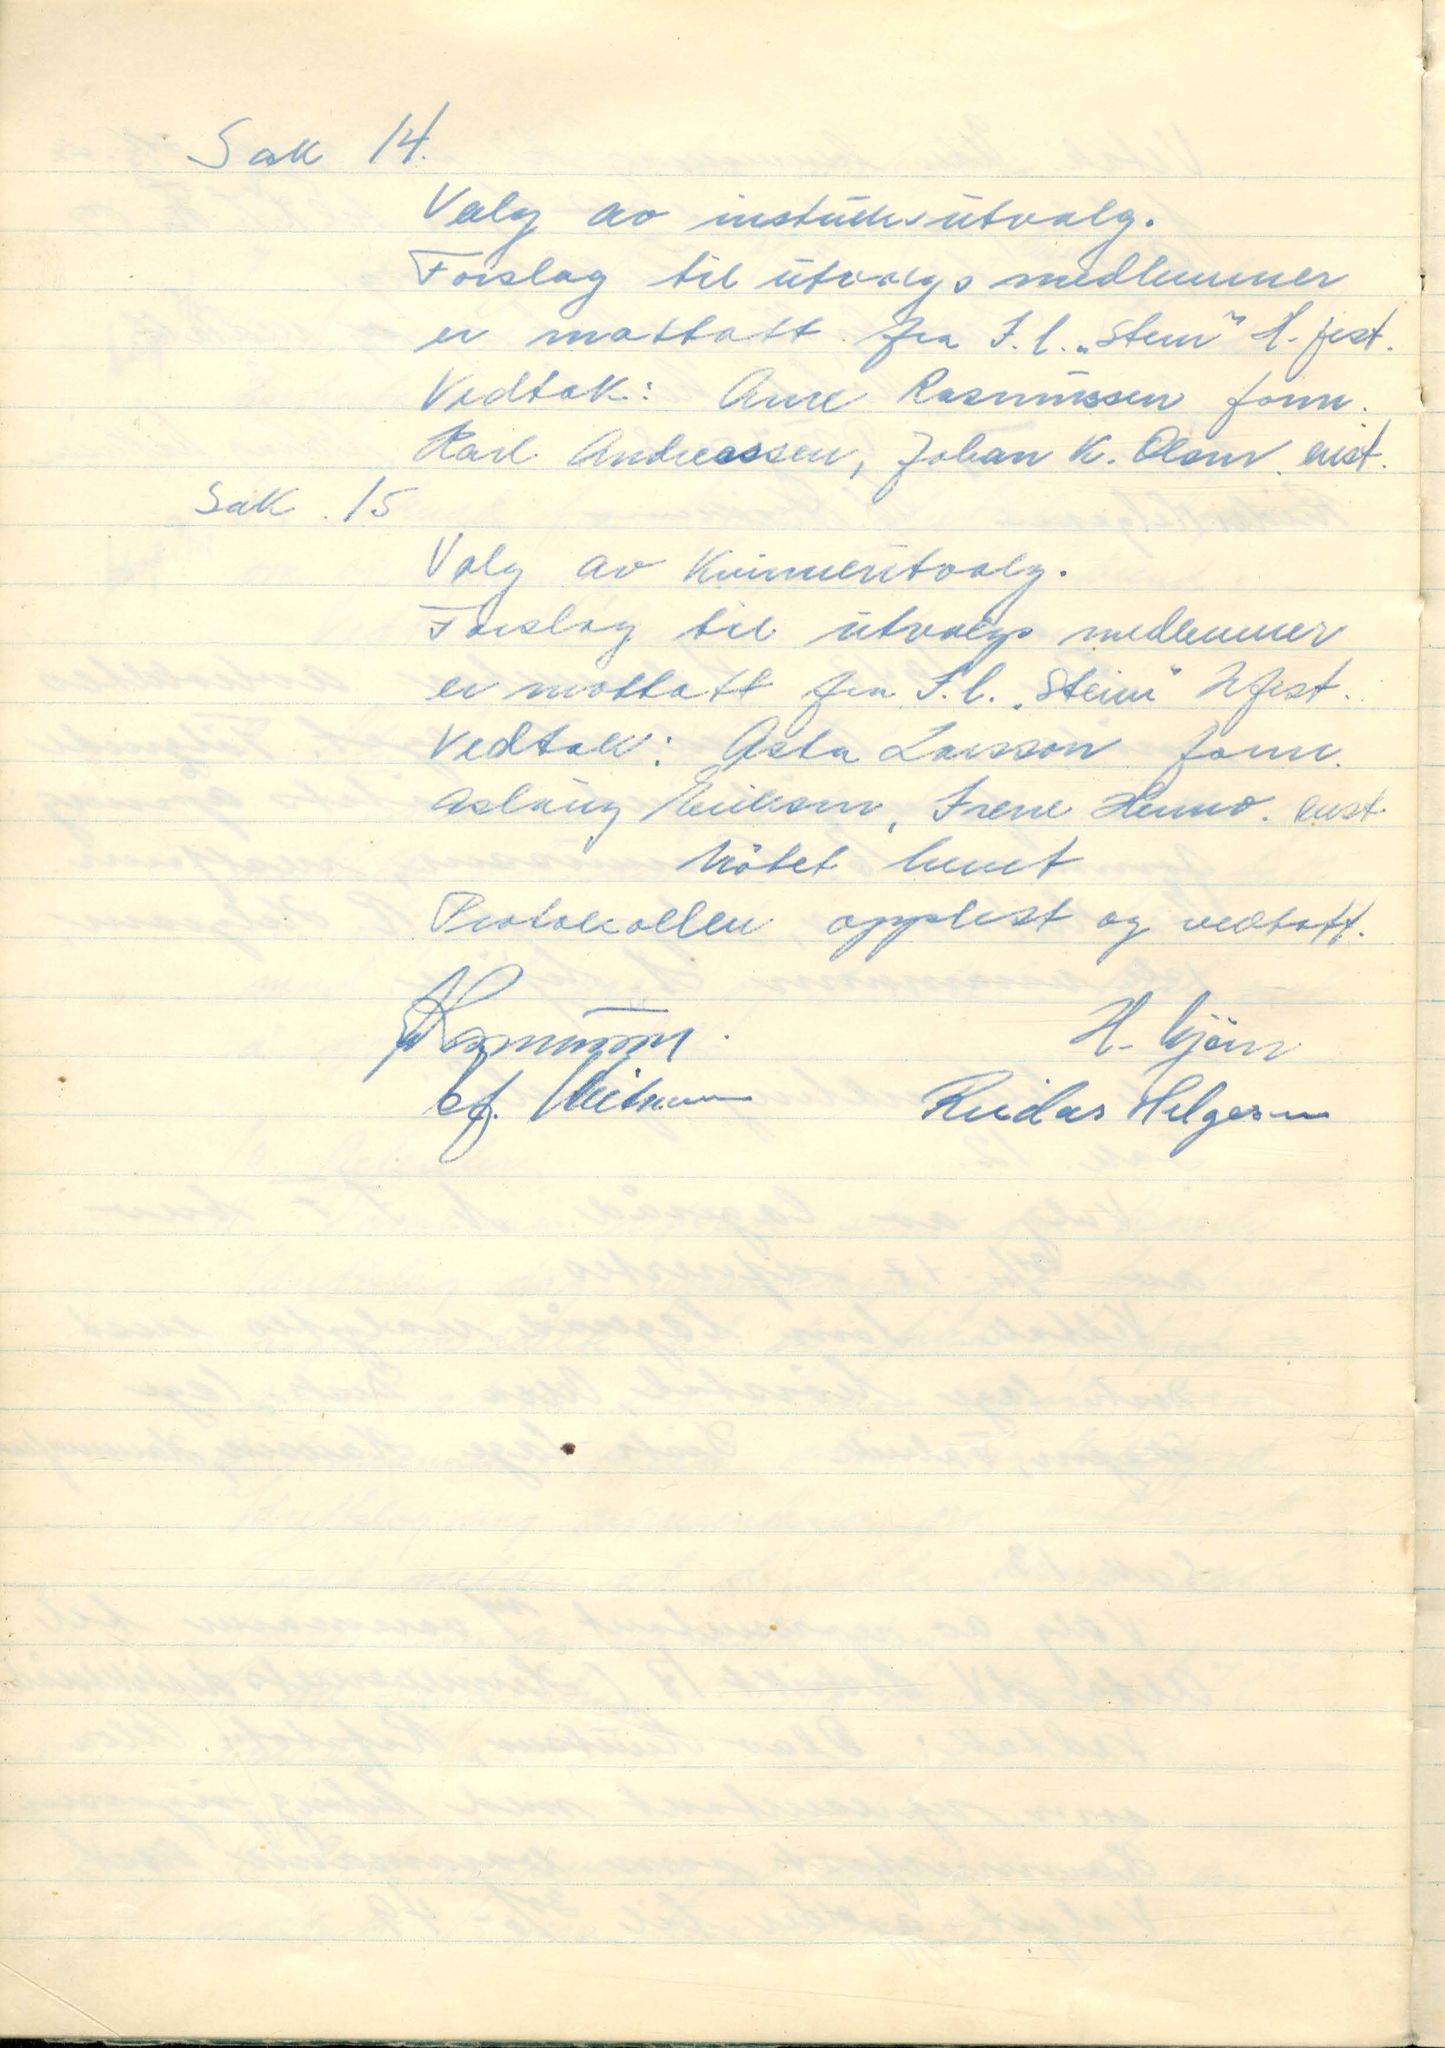 Sak 14.
Valg av instruksutvalg.
Forslag til utvalgs medlemmer
er mottatt fra I.l. „Stein" H. fest.
Vedtak: Arne Rasmussen form.
Karl Andreassen, Johan K. Olsen. enst.
Sak 15
Valg av Kvinneutvalg.
Forslag til utvalgs medlemmer
er mottatt fra I.l. „Stein" H fest.
Vedtak: Asta Larsson form.
Aslaug Eriksen, Irene Henno. enst.
Møtet hevet
Protokollen opplest og vedtatt.
H.
Reidar Helgesen